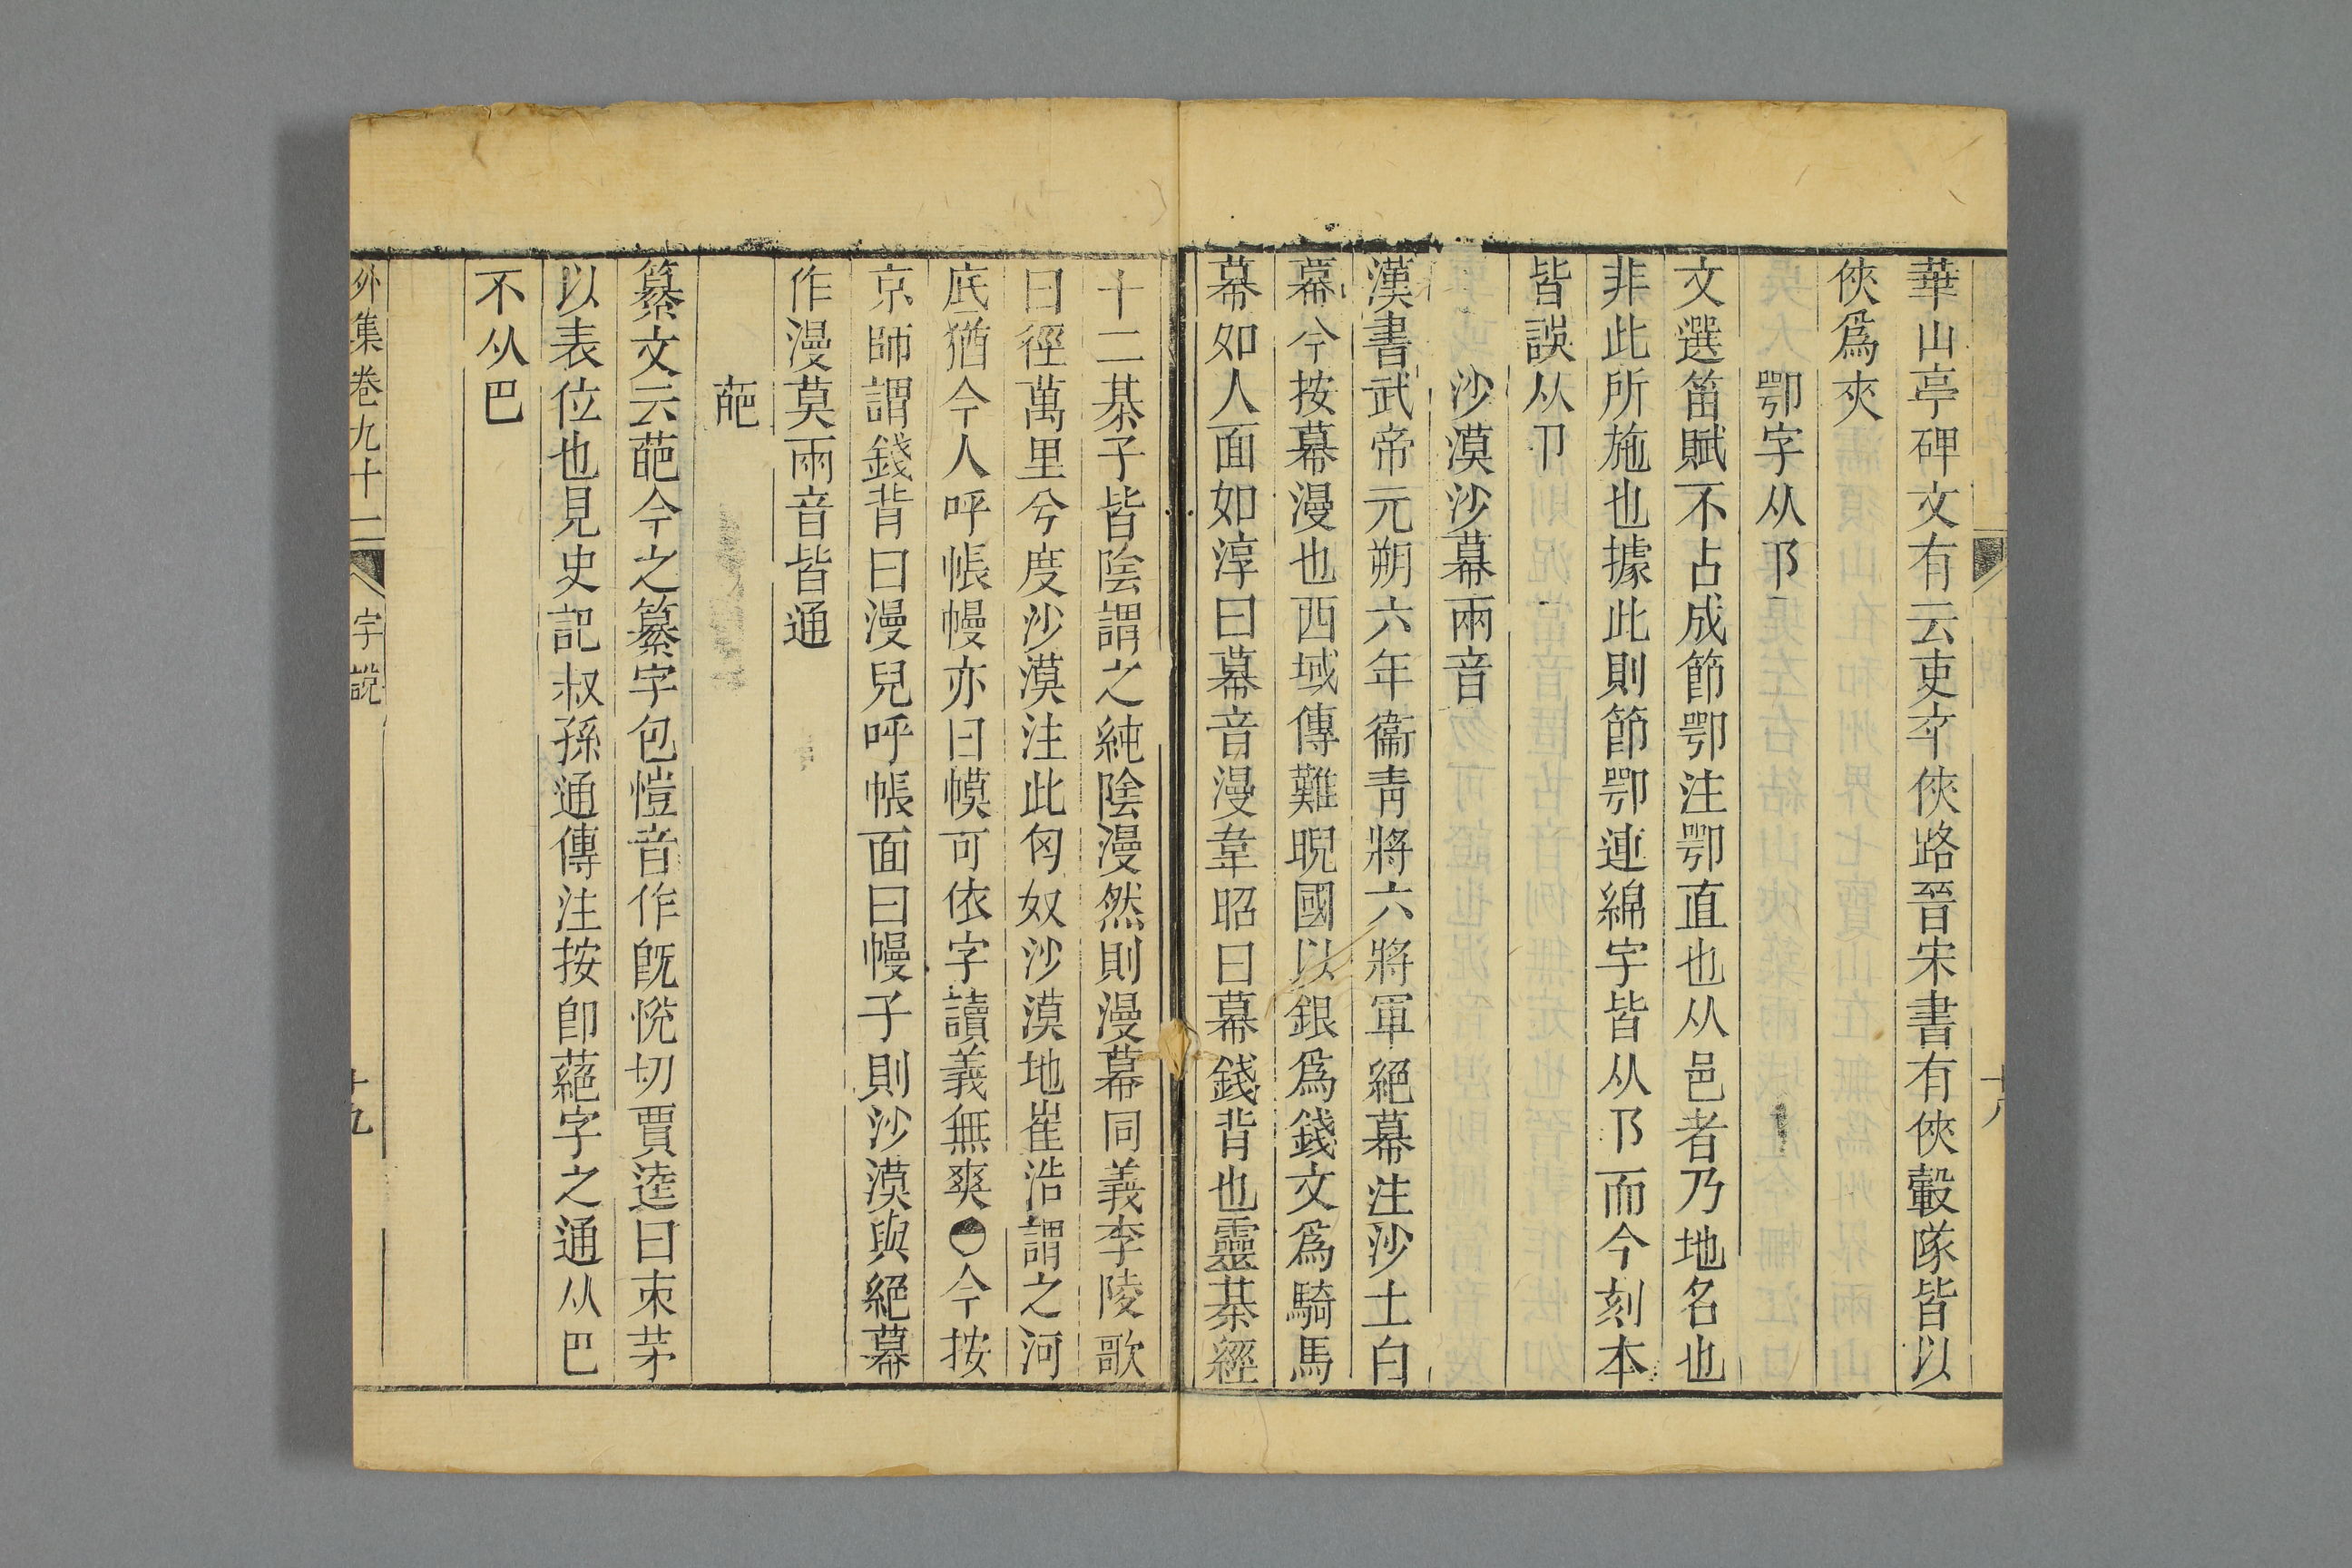 華山亭碑文有云吏卒俠路晉宋書有俠轂隊皆以
俠爲夾
鄂字从卪
文選笛賦不占成節鄂注鄂直也从邑者乃地名也
非此所施也據此則節鄂連綿字皆从卪而今刻本
皆誤从卩
沙漠沙幕兩音
漢書武帝元朔六年衞靑將六將軍絕幕注沙土曰
幕今按幕漫也西域傳難睨國以銀爲錢文爲騎馬
幕如人面如淳曰幕音漫韋昭曰幕錢背也靈棊經
十二棊子皆陰謂之純陰漫然則漫幕同義李陵歌
曰徑萬里兮度沙漠注此匈奴沙漠地崔浩謂之河
底猶今人呼帳幔亦曰幙可依字讀義無爽今按
京師謂錢背曰漫兒呼帳面曰幔子則沙漠與絕幕
作漫莫兩音皆通
蕝
纂文云蕝今之纂字包愷音作旣悅切賈逵曰束茅
以表位也見史記叔孫通傳注按卽蕝字之通从巴
不从巴
外集卷九十二 字說 十九
十八